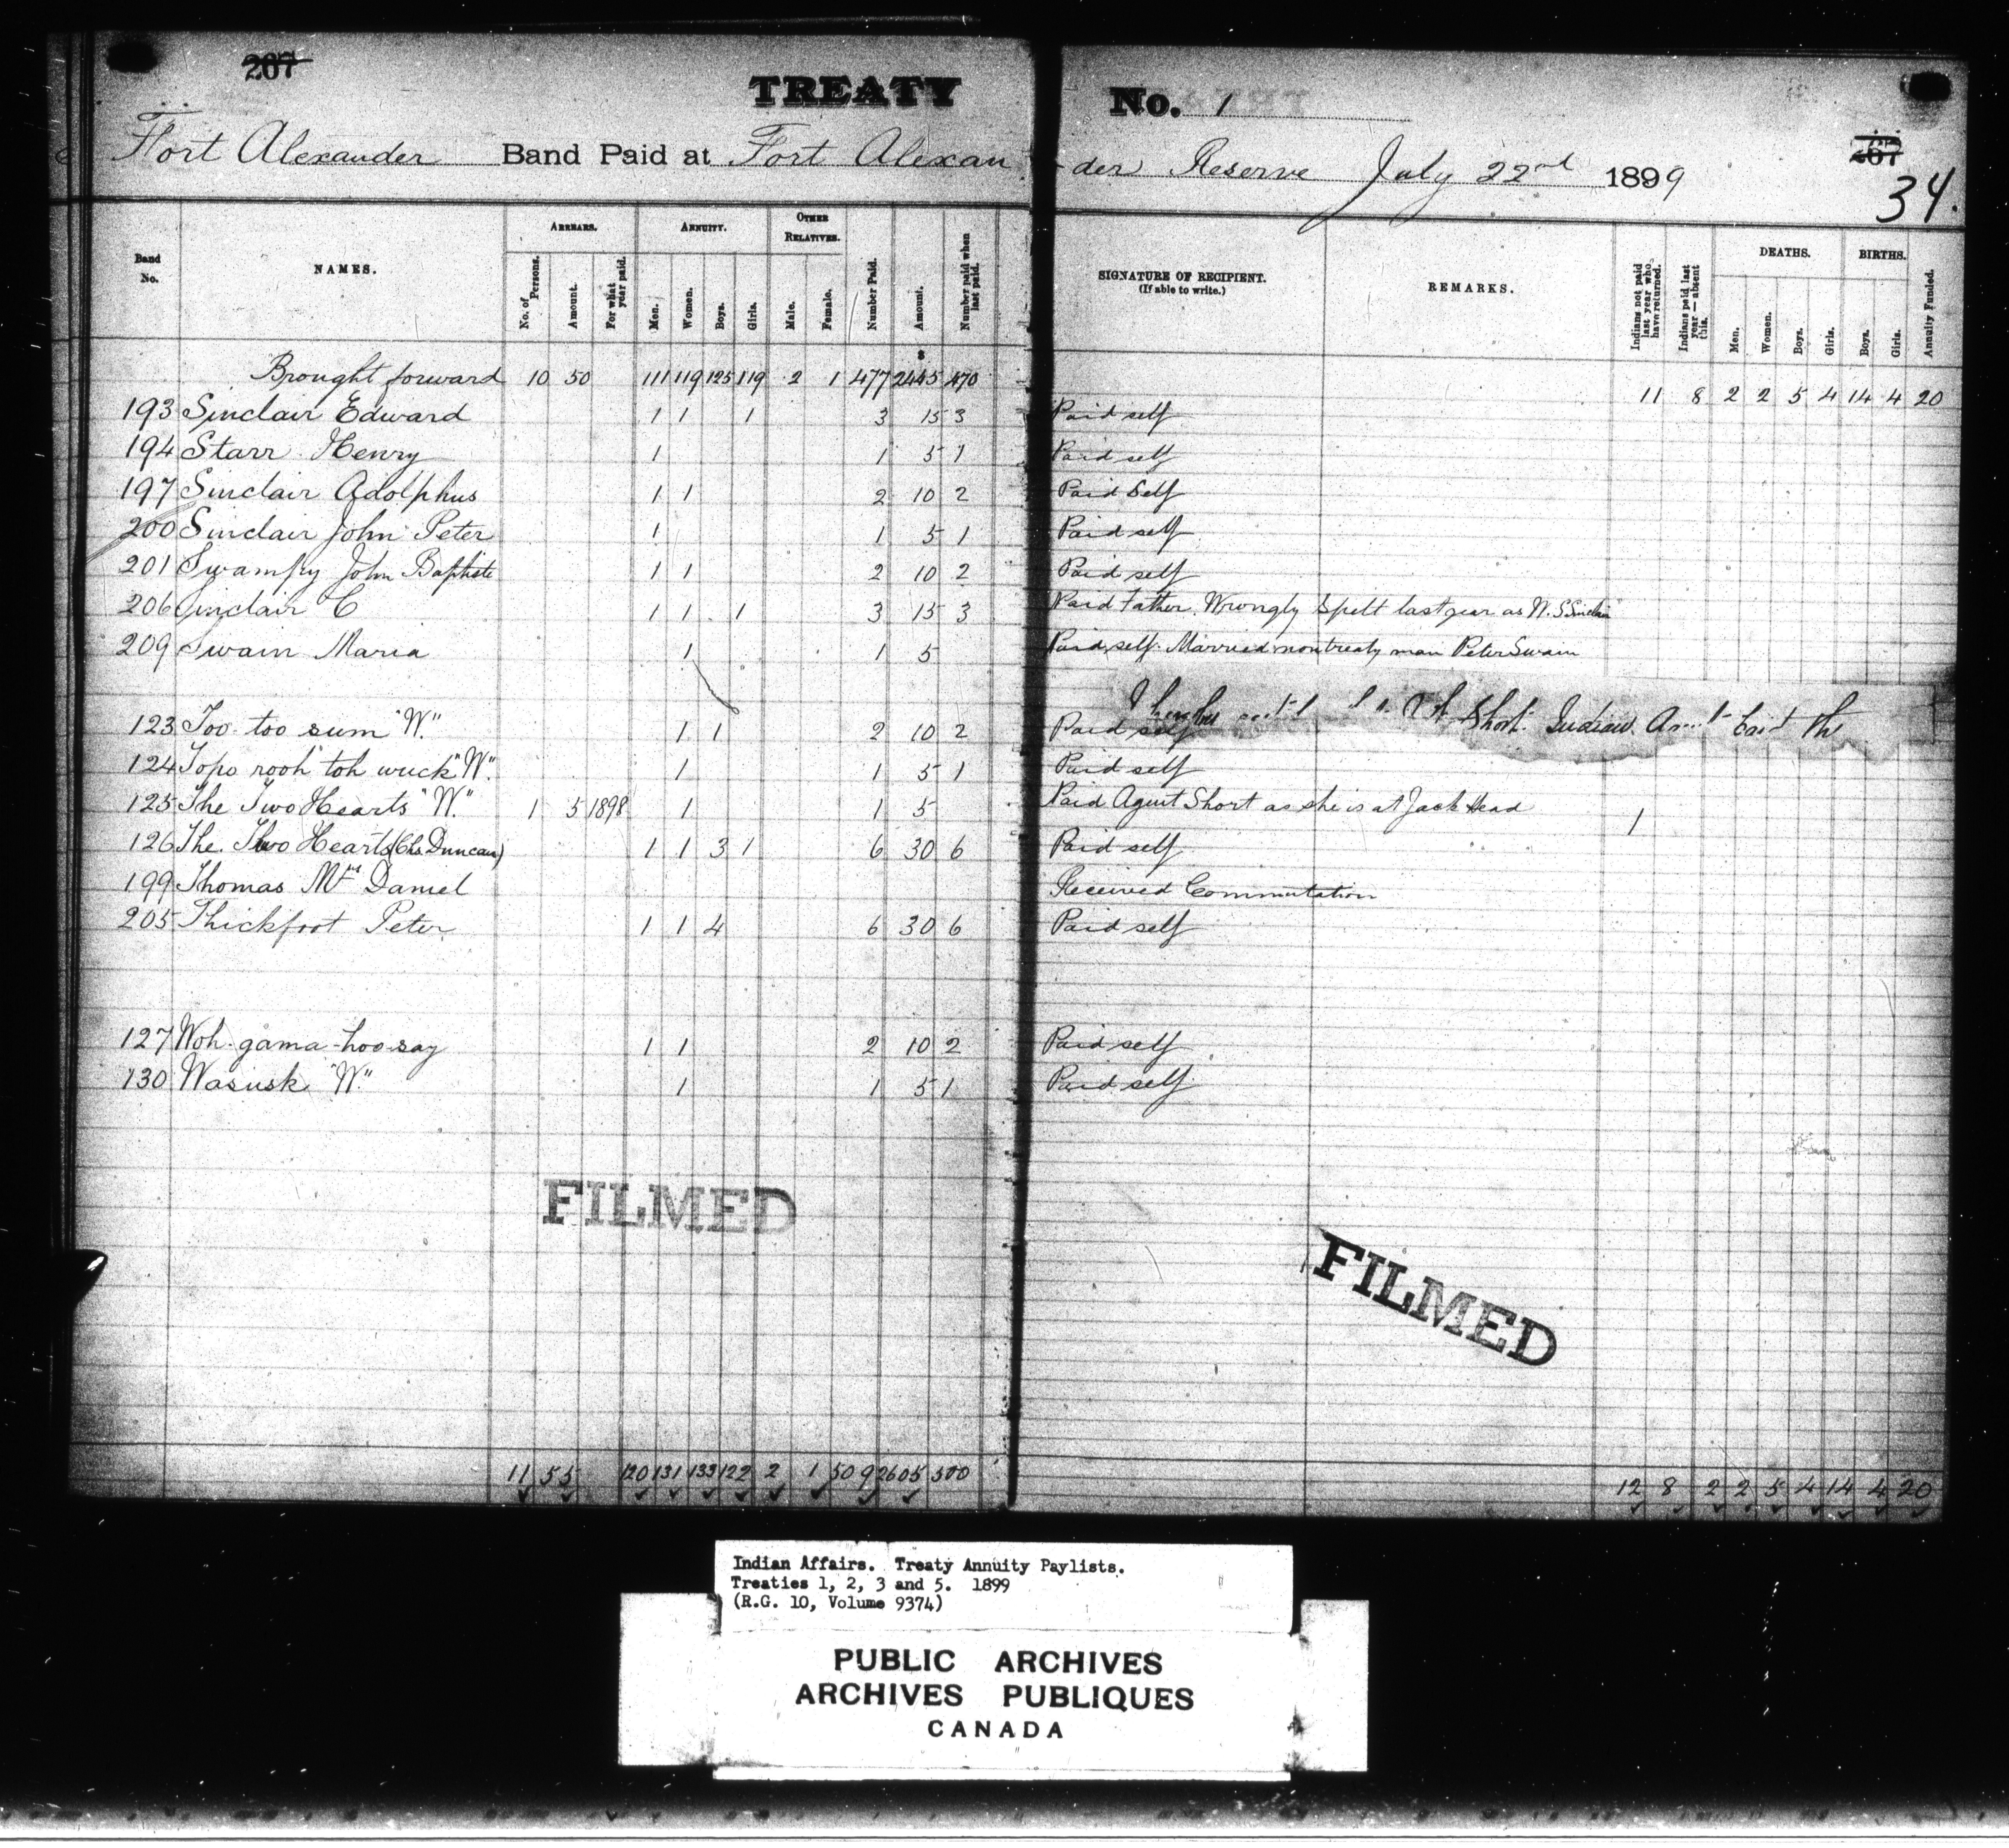 267
TREATY No. 1
267
34.
Fort Alexander Band Paid at Fort Alexander Reserve July 22nd 1899
Band No. NAMES. ARREARS. No. of Persons. Amount. For what year paid. ANNUITY. Men. Women. Boys. Girls. OTHER RELATIVES. Male. Female. Number Paid. Amount. Number paid when last paid. SIGNATURE OF RECIPIENT. (If able to write.) REMARKS. Indians not paid last year who have returned. Indians paid last year—absent this. DEATHS. Men. Women. Boys. Girls. BIRTHS. Boys. Girls. Annuity Funded.
$
Brought forward 10 50 111 119 125 119 2 1 477 2445 470 11 8 2 2 5 4 14 4 20
193 Sinclair Edward 1 1 1 3 15 3 Paid self
194 Starr Henry 1 1 5 1 Paid self
197 Sinclair Adolphus 1 1 2 10 2 Paid Self
200 Sinclair John Peter 1 1 5 1 Paid self
201 Swampy John Baptiste 1 1 2 10 2 Paid self
206 Sinclair C 1 1 1 3 15 3 Paid Father. Wrongly Spelt last year as W. S. Sinclair
209 Swain Maria 1 1 5 Paid self. Married non treaty man Peter Swain
Short Indian
123 Too-too sum "W." 1 1 2 10 2 Paid self
124 Topo rooh toh wuck "W". 1 1 5 1 Paid self
125 The Two Hearts "W." 1 5 1898 1 1 5 Paid Agent Short as she is at Jack Head 1
126 The Two Hearts (Chs. Duncan) 1 1 3 1 6 30 6 Paid self
199 Thomas Mrs Daniel Received Commutation
205 Thickfoot Peter 1 1 4 6 30 6 Paid self
127 Woh-gama-hoo-say 1 1 2 10 2 Paid self
130 Wasusk "W." 1 1 5 1 Paid self
FILMED
FILMED
11 55 120 131 133 122 2 1 509 2605 500 12 8 2 2 5 4 14 4 20
Indian Affairs. Treaty Annuity Paylists.
Treaties 1, 2, 3 and 5. 1899
(R.G. 10, Volume 9374)
PUBLIC ARCHIVES
ARCHIVES PUBLIQUES
CANADA